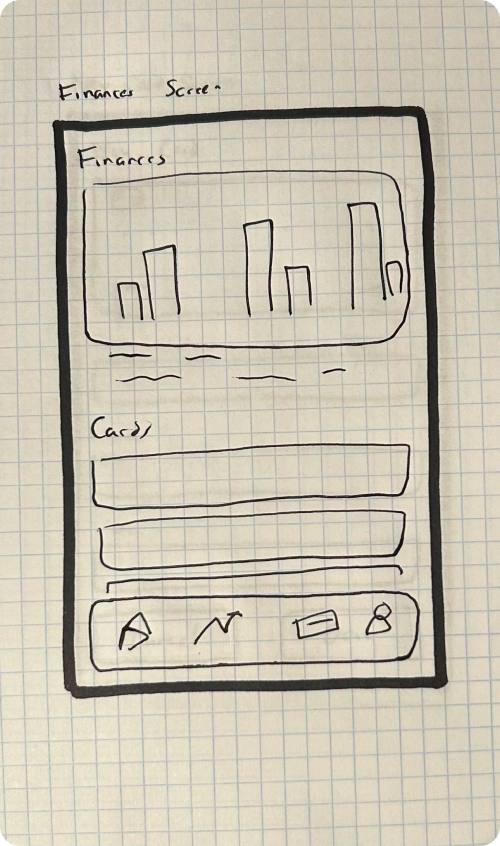 Finances Screen
Finances
Cards